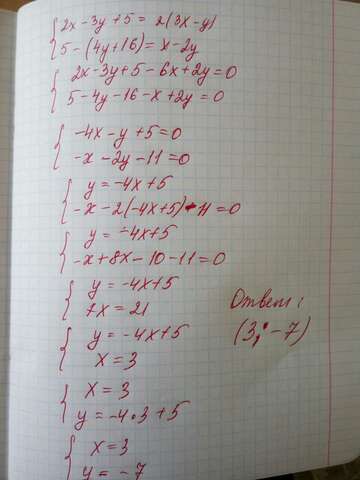 2x-3y+5=2(3x-y)
5-(4y+16)=x-2y
2x-3y+5-6x+2y=0
5-4y-16-x+2y=0
-4x-y+5=0
-x-2y-11=0
y=-4x+5
-x-2(-4x+5)-11=0
y=-4x+5
-x+8x-10-11=0
y=-4x+5
7x=21
y=-4x+5
x=3
x=3
y=-4·3+5
x=3
y=-7
Ответ:
(3;-7)